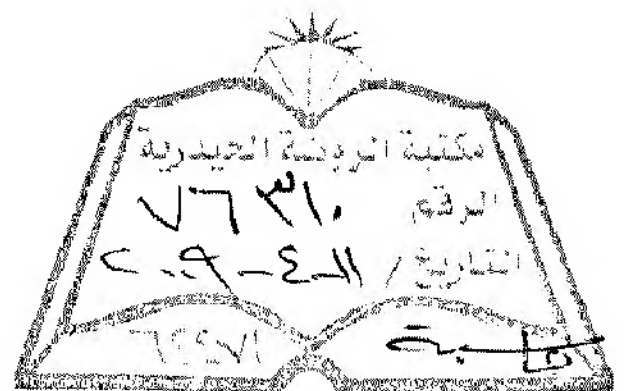 مكتبة الروضة الحيدرية
الرقم ٧٦٣١٠
التاريخ / ١١-٤-٢٠٠٩